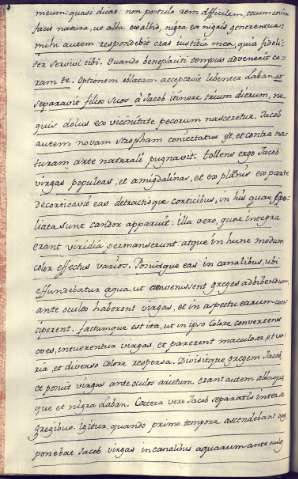 meum: quasi dicat non postulo rem difficilem, tecum enim
facis natura, ut alba ex albis, nigra ex nigris generentur:
mihi autem respondebit cras iustitia mea, quia fideli-
ter servivi tibi. Quando beneplaciti tempus advenerit co-
ram te. Optionem ellaram acceptavit libenter Laban, et
separavit filios suos á Jacob itinere trium dierum, ne
quis dolus ex vicinitate pecorum nasceretur. Jacob
autem novam stropham coniectatus est, et contra na-
turam arte naturali pugnavit. Tollens ergo Jacob
virgas populeas, et amigdalinas, et ex platanis ex parte
decorticavit eas detractisque corticibus, in his quae spo-
liata sunt candor apparuit. Illa vero, quae integra
erant viridia permanserunt atque in hunc modum
color effectus varius. Posuitque eas in canalibus, ubi
effundebatur aqua, ut cum venissent greges ad bibendum
ante oculos haberent virgas, et in aspectu earum con-
ciperent. factumque est ita, ut in ipso calore conversens
oves, intuerentur virgas, et parerent maculosa, et va-
ria, et diverso colore respersa. Divisitque gregem Jacob,
et posuit virgas ante oculos arietum, erant autem alba quae-
que et nigra Laban. Caetera vero Jacob separatis inter se
gregibus. Igitur quando primo tempore ascendebant oves
ponebat Jacob virgas in canalibus aquarum ante oculos